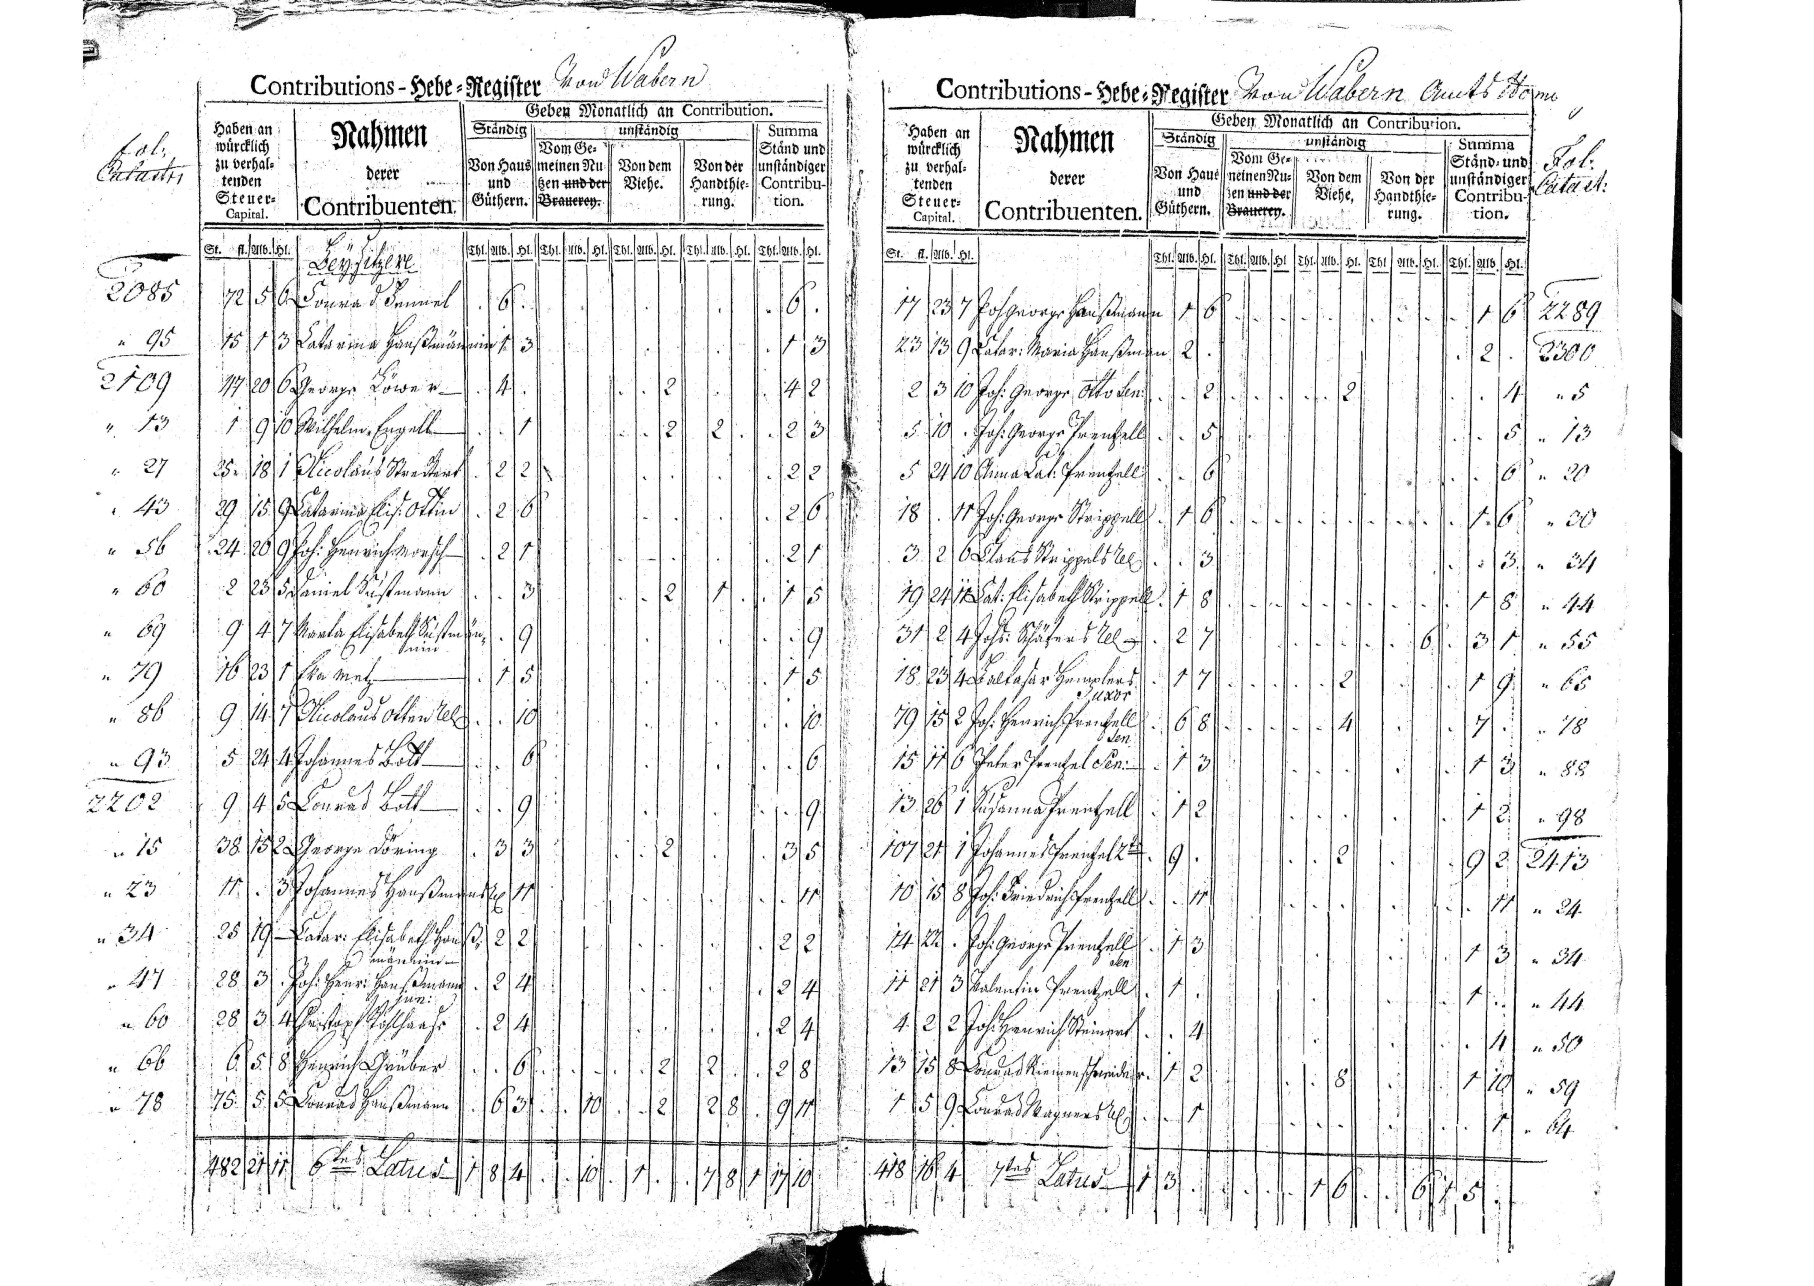 Contributions-Hebe-Register Von Wabern
fol:
Catastri
Haben an würcklich zu verhaltenden Steuer-Capital.
Nahmen derer Contribuenten.
Geben Monatlich an Contribution.
Ständig
unständig
Summa Ständ und unständiger Contribution.
Von Hauß und Güthern.
Vom Gemeinen Nutzen und der Brauerey.
Von dem Viehe.
Von der Handthierung.
St. fl. Alb. Hl. Thl. Alb. Hl. Thl. Alb. Hl. Thl. Alb. Hl. Thl. Alb. Hl. Thl. Alb. Hl.
Beysitzere
2085 72 5 6 Conrad . 6 . 6 .
" 95 15 1 3 Catarina Hanßmännin 1 3 1 3
2109 47 20 6 George Löwer . 4 . 2 4 2
" 13 1 9 10 Wilhelm Engell . . 1 2 2 . 2 3
" 27 25 18 1 Nicolaus . 2 2 2 2
" 43 29 15 9 Catarina Elis: Ottin . 2 6 2 6
" 56 24 20 9 Joh: Henrich Morsch . 2 1 2 1
" 60 2 23 5 Daniel Sustmann . . 3 2 1 . 1 5
" 69 9 4 7 Marta Elisabeth Sustmännin . . 9 9
" 79 16 23 1 Eva Metz . 1 5 1 5
" 86 9 14 7 Nicolaus Otten Rel . . 10 10
" 93 5 24 4 Johannes Bott . . 6 6
2202 9 4 5 Conrad Bott . . 9 9
" 15 38 15 2 George Döring . 3 3 2 3 5
" 23 11 . 3 Johannes Hanßmans Rel 11 11
" 34 25 19 – Catar: Elisabeth Hanßmännin 2 2 2 2
" 47 28 3 . Joh: Henr: Hanßmann jun: . 2 4 2 4
" 60 28 3 4 Christoph . 2 4 2 4
" 66 6 5 8 Henrich Grüber . . 6 2 2 . 2 8
" 78 75 5 5 Conrad Hanßmann . 6 3 . 10 . 2 2 8 . 9 11
482 21 11 6tes Latus 1 8 4 . . 10 . 1 . . 7 8 1 17 10
Contributions-Hebe-Register Von Wabern Amts
Fol:
Catast:
Haben an würcklich zu verhaltenden Steuer-Capital.
Nahmen derer Contribuenten.
Geben Monatlich an Contribution.
Ständig
unständig
Summa Ständ- und unständiger Contribution.
Von Hauß und Güthern.
Vom Gemeinen Nutzen und der Brauerey.
Von dem Viehe.
Von der Handthierung.
St. fl. Alb. Hl. Thl. Alb. Hl. Thl. Alb. Hl. Thl. Alb. Hl. Thl. Alb. Hl. Thl. Alb. Hl.
17 23 7 Joh George Hanßmann 1 6 1 6 2289
23 13 9 Catar: Maria Hanßman 2 . 2 . 2300
2 3 10 Joh: George Otto Sen: . . 2 2 4 " 5
5 10 . Joh: George Prentzell . . 5 5 " 13
5 24 10 Anna Cat: Prentzell . . 6 6 " 20
18 . 11 Joh: George Strippell . 1 6 1 6 " 30
3 2 6 Claus Strippels Rel . . 3 3 " 34
19 24 11 Cat: Elisabeth Strippell . 1 8 1 8 " 44
31 2 4 Johs: Schäfers Rel . 2 7 6 3 1 " 55
18 23 4 Baltasar Hemplers Uxor . 1 7 2 1 9 " 65
79 15 2 Joh: Henrich Prentzell Sen . 6 8 4 7 . " 78
15 11 6 Peter Prentzel Sen: . 1 3 1 3 " 88
13 26 1 Susanna Prentzell . 1 2 1 2 " 98
107 21 1 Johannes Prentzel 2te . 9 . 2 9 2 2413
10 15 8 Joh: Friedrich Prentzell . . 11 11 " 24
14 22 . Joh: George Prentzell Sen . 1 3 1 3 " 34
11 21 3 Valentin Prentzell . 1 . 1 . " 44
4 2 2 Joh: Henrich Steinert . . 4 4 " 50
13 15 8 Conrad Riemenschneider . 1 2 8 1 10 " 59
1 5 9 Conrad Wagners Rel . . 1 1 " 64
418 16 4 7tes Latus 1 3 . . . . . 1 6 . . 6 1 5 .